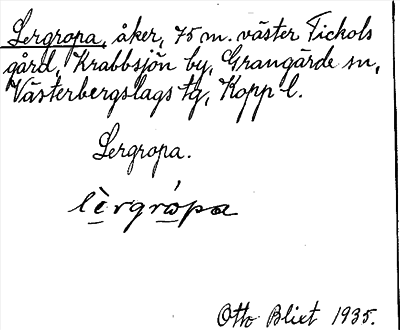 Lergropa, åker, 75 m. väster Tickols
gård, Krabbsjön by, Grangärde sn,
Västerbergslags tg, Kopp l.
Lergropa.
lèrgrópa
Otto Blixt 1935.